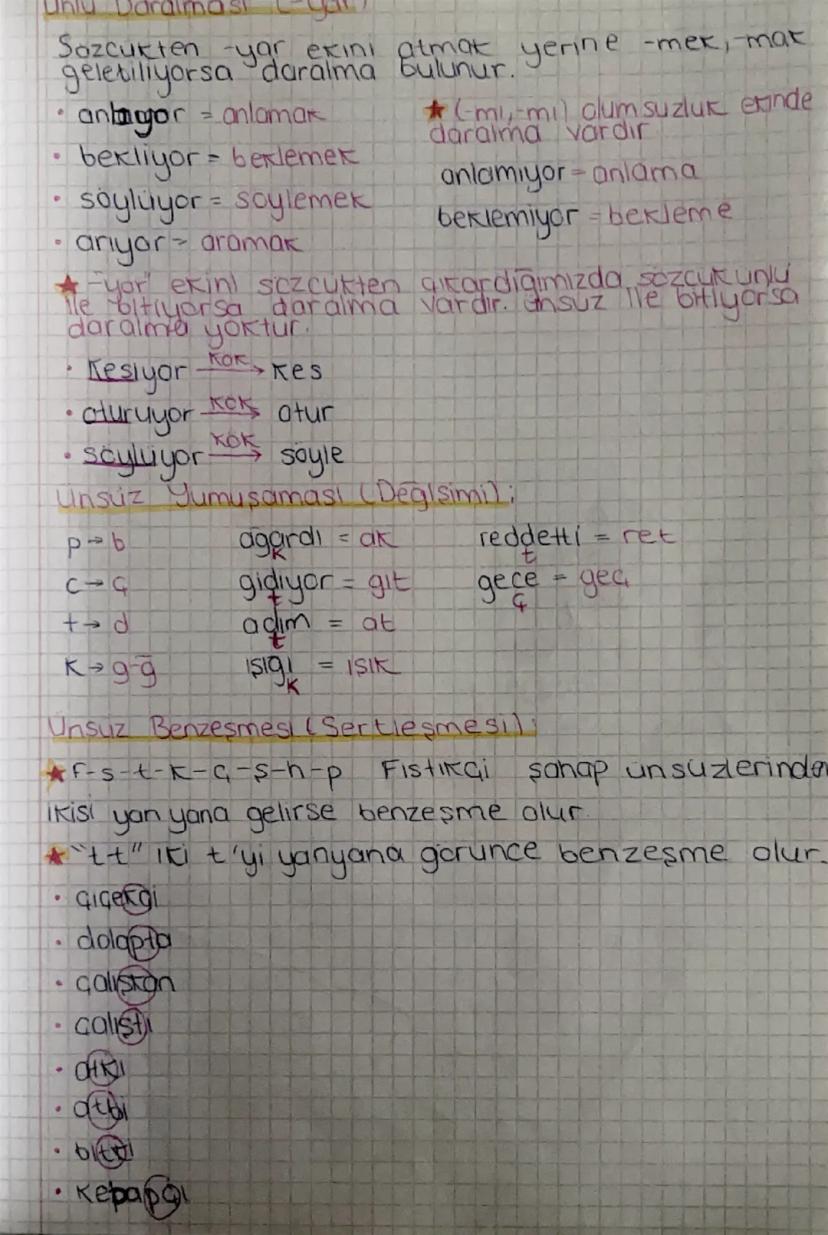 Ünlü Daralması (-yor)
Sözcükten -yor ekini atmak yerine -mek, -mak
getiriliyorsa daralma bulunur.
• anlıyor = anlamak
• bekliyor = beklemek
• söylüyor = söylemek
• arıyor = aramak
★ (-mı,-mi) olumsuzluk ekinde
daralma vardır
anlamıyor = anlama
beklemiyor = bekleme
★ -yor ekini sözcükten çıkardığımızda sözcük ünlü
ile bitiyorsa daralma vardır. Ünsüz ile bitiyorsa
daralma yoktur.
• Kesiyor kök→ kes
• oturuyor kök→ otur
• söylüyor kök→ söyle
Ünsüz Yumuşaması (Değişimi):
p→b
c→ç
t→d
k→g-ğ
ağardı = ak
k
gidiyor = git
t
adım = at
t
ışığı = ışık
k
reddetti = ret
t
gece = geç
ç
Ünsüz Benzeşmesi (Sertleşmesi):
★ F-s-t-k-ç-ş-h-p Fıstıkçı şahap ünsüzlerinden
ikisi yan yana gelirse benzeşme olur.
★ "tt" iki t'yi yanyana görünce benzeşme olur.
• çiçekçi
• dolapta
• çalışkan
• çalıştı
• atkı
• bitti
• kebapçı